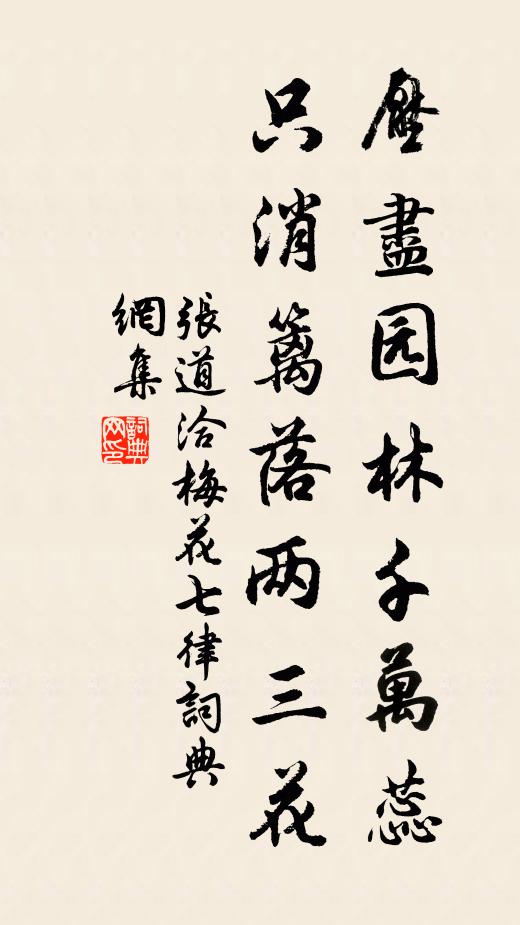 壓盡园林千萬蕊
只消籬落两三花
張道洽梅花七律詞典
網集
詞典
网印